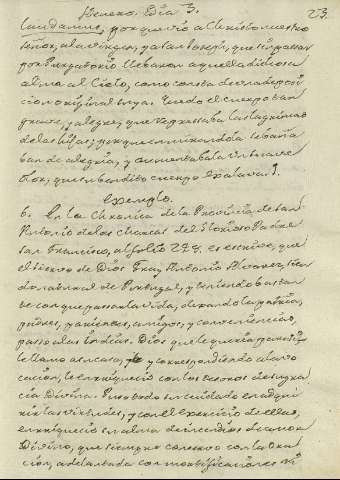 Henero. Dia 3. 23.
laudamus, porque vio a Christo nuestro
Señor, a la Virgen, y a San Joseph, que sin passar
por Purgatorio llebaron aquella dichosa
alma al Cielo, como consta de una
original suya. Quedo el cuerpo tan
grave, y alegre, que represaba las lagrimas
de las hijas; porque en mirandola se baña
ban de alegria, y aumentabala un suave
olor, que su bendito cuerpo exalava.
Exemplo.
6. En la Chronica de la Provincia de San
Antonio de los Charcas del Glorioso Padre
San Francisco, al folio 278. se escrive, que
el siervo de Dios Fray Antonio Alvarez, fue
de natural de Portugal, y teniendo bastan
te con que passar la vida, dexando la patria,
padres, parientes, amigos, y conveniencias,
passo a las Indias. Dios que le queria para si
le llamo a su casa, y correspondiendo a la vo
cacion, le enriquecio con los tesoros de su gra
cia Divina. Puso todo su cuidado en adqui
rir las virtudes, y con el exercicio de ellas,
enriquecio su alma de incendios de amor
Divino, que siempre conservo con la Ora
cion, adelantada con mortificaciones